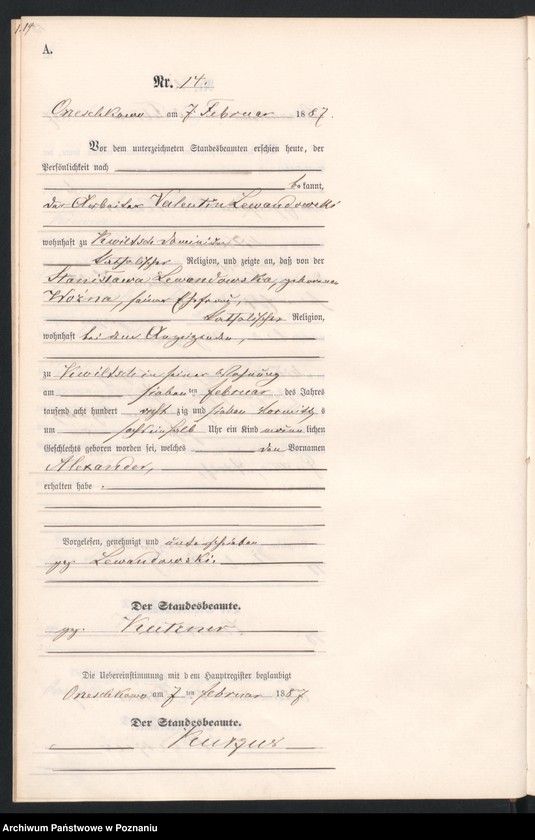 A.
Nr. 14.
Orzeschkowo am 7 Februar 1887.
Vor dem unterzeichneten Standesbeamten erschien heute, der
Persönlichkeit nach
bekannt,
der Arbeiter Valentin Lewandowski
wohnhaft zu Kwiltsch Dominium
katholischer Religion, und zeigte an, daß von der
Stanislawa Lewandowska, geborenen
Woźna, seiner Ehefrau,
katholischer Religion,
wohnhaft bei dem Anzeigenden,
zu Kwiltsch in seiner Wohnung
am sieben ten Februar des Jahres
tausend acht hundert acht zig und sieben Vormittags
um Uhr ein Kind männlichen
Geschlechts geboren worden sei, welches den Vornamen
Alexander,
erhalten habe .
Vorgelesen, genehmigt und unterschrieben
gez Lewandowski.
Der Standesbeamte.
gez.
Die Uebereinstimmung mit dem Hauptregister beglaubigt
Orzeschkowo am 7 ten Februar 1887
Der Standesbeamte.
Archiwum Państwowe w Poznaniu